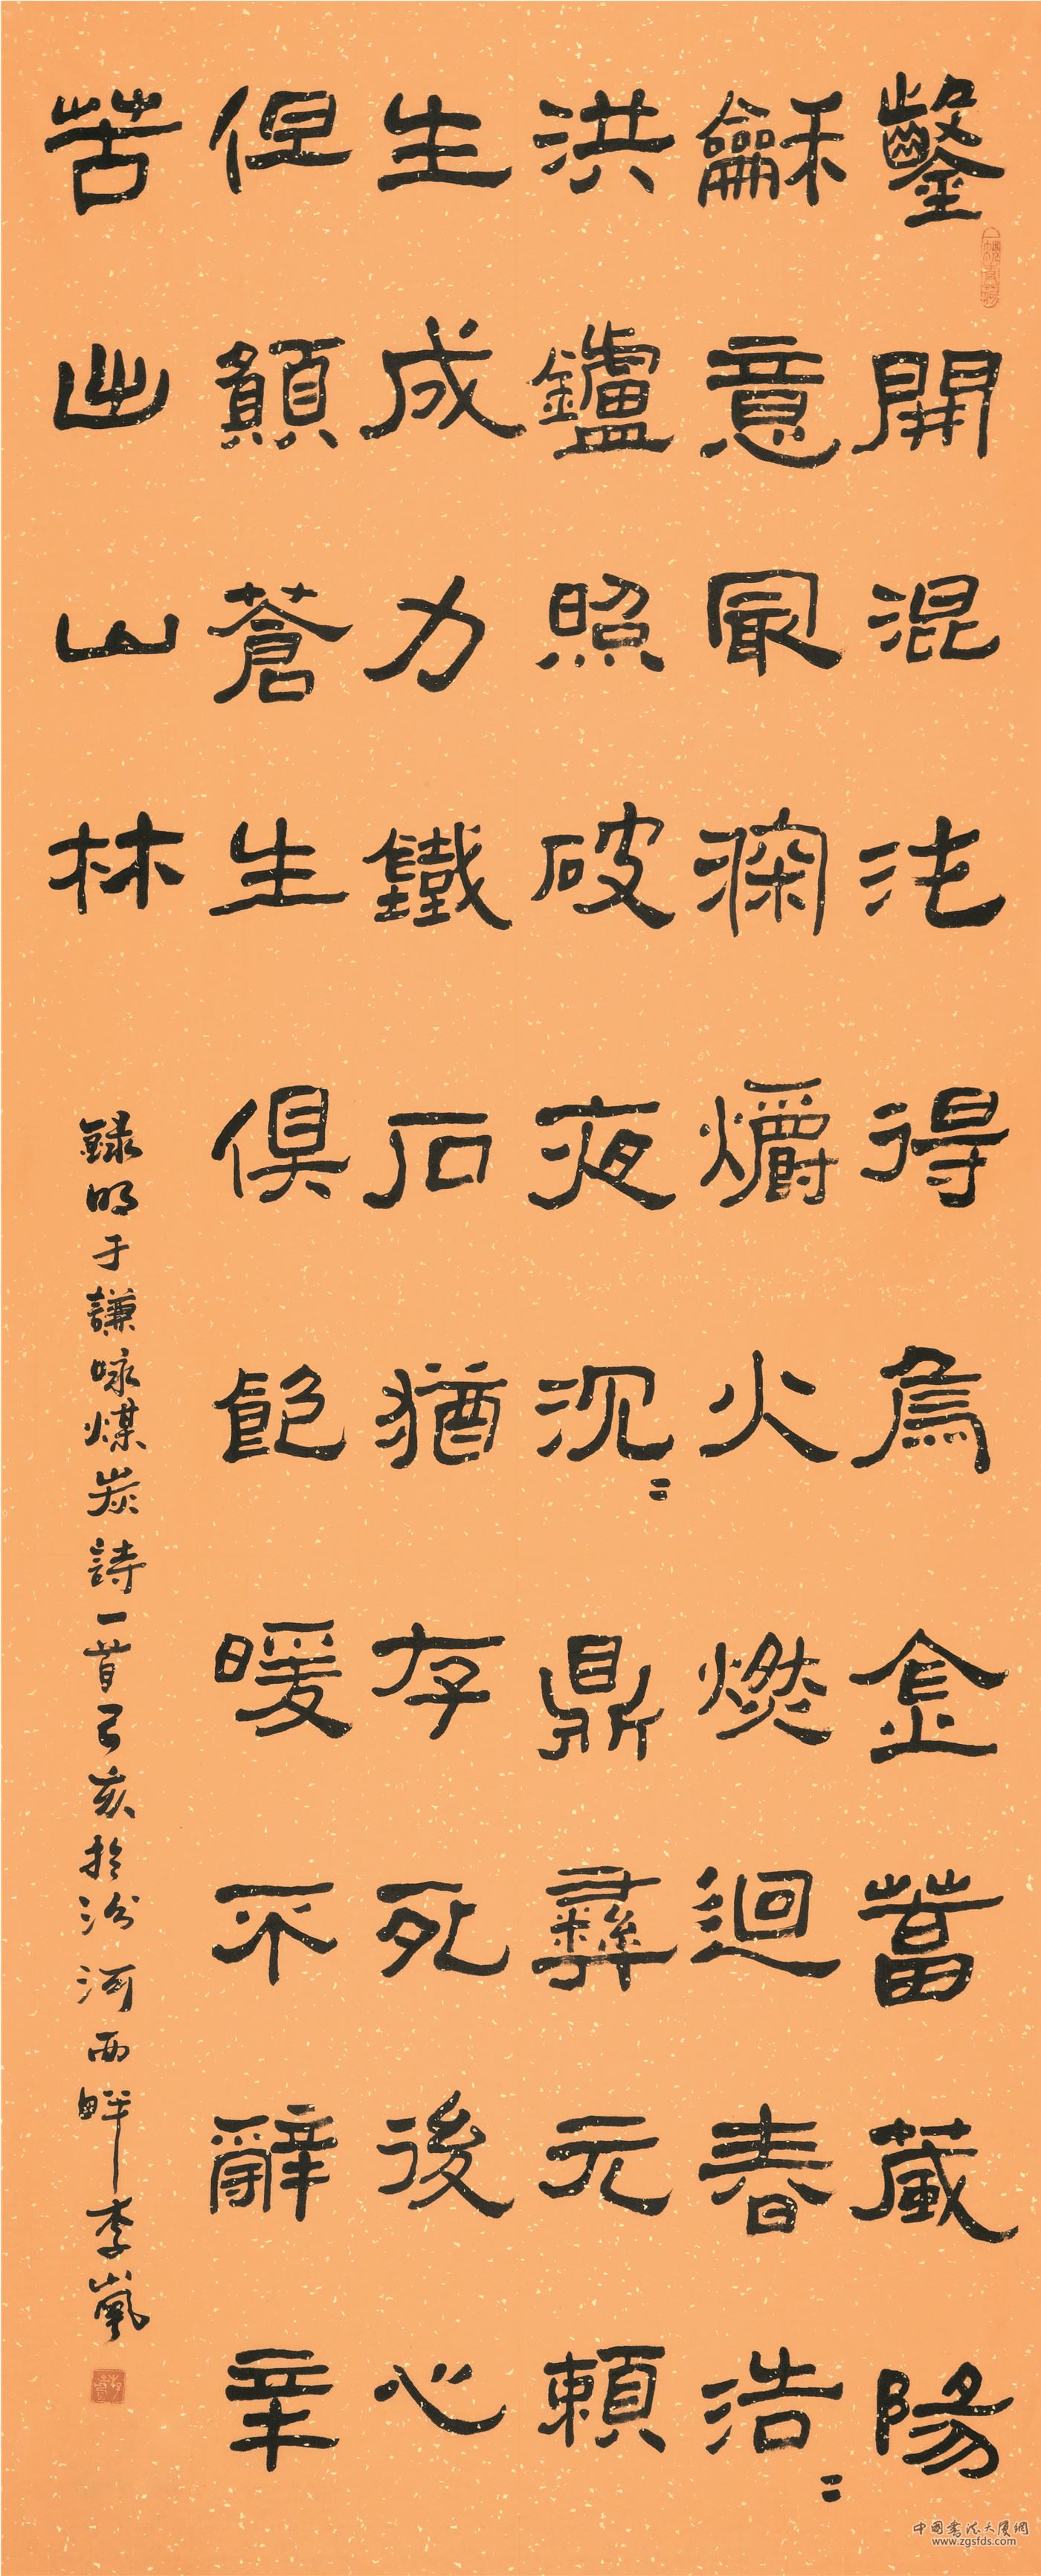 鑿開混沌得烏金蓄藏陽
龢意冣深爝火燃迴春浩〻
洪鑪照破夜沉〻鼎彝元賴
生成力鐵石猶存死後心
但願蒼生俱飽暖不辭辛
苦出山林
録明于謙咏煤炭詩一首己亥於汾河西畔李嵐
中国書法大廈網
www.zgsfds.com